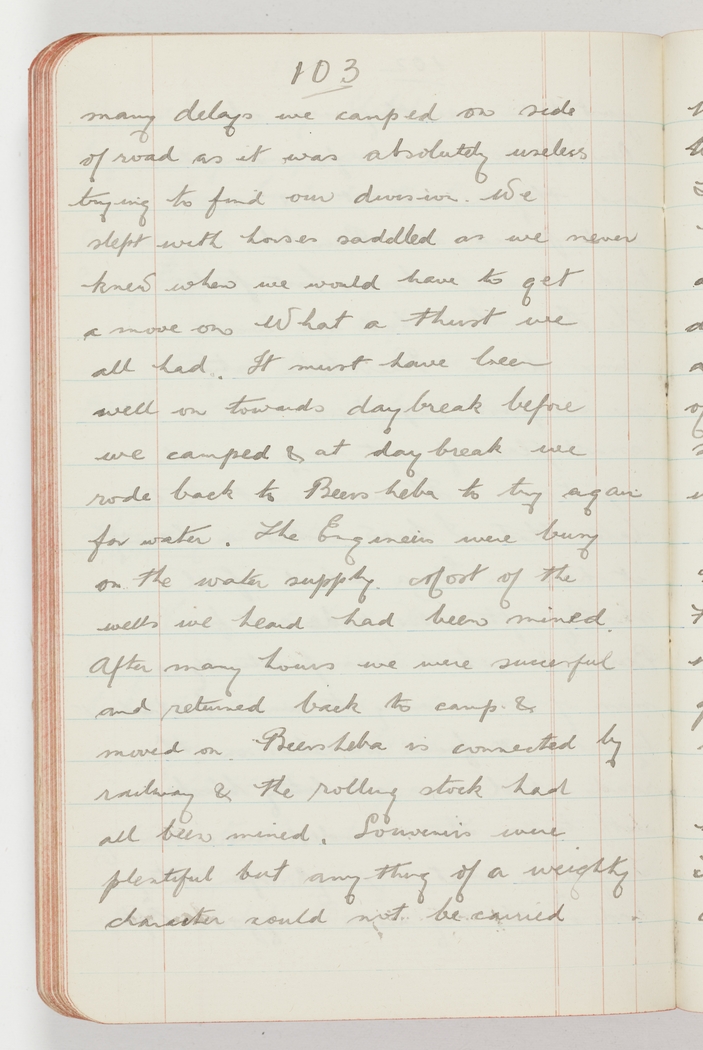 103
many delays we camped on side
of road as it was absolutely useless
trying to find our division. We
slept with horses saddled as we never
knew when we would have to get
a move on What a thirst we
all had. It must have been
well on towards daybreak before
we camped & at daybreak we
rode back to Beersheba to try again
for water. The Engineers were busy
on the water supply. Most of the
wells we heard had been mined.
After many hours we were successful
and returned back to camp &
moved on. Beersheba is connected by
railway & the rolling stock had
all been mined. Souvenirs were
plentiful but anything of a weighty
character could not be carried